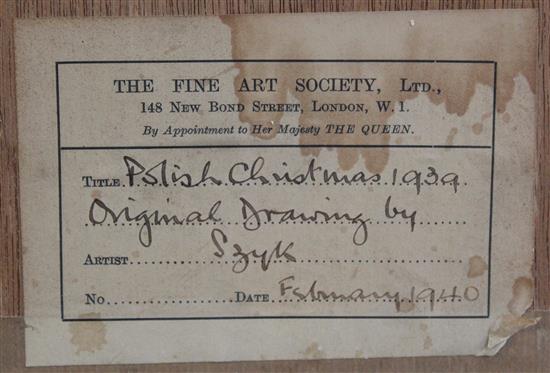 THE FINE ART SOCIETY, LTD.,
148 NEW BOND STREET, LONDON, W. 1.
By Appointment to Her Majesty THE QUEEN.
TITLE Polish Christmas 1939.
Original Drawing by
ARTIST Szyk
NO. DATE February 1940